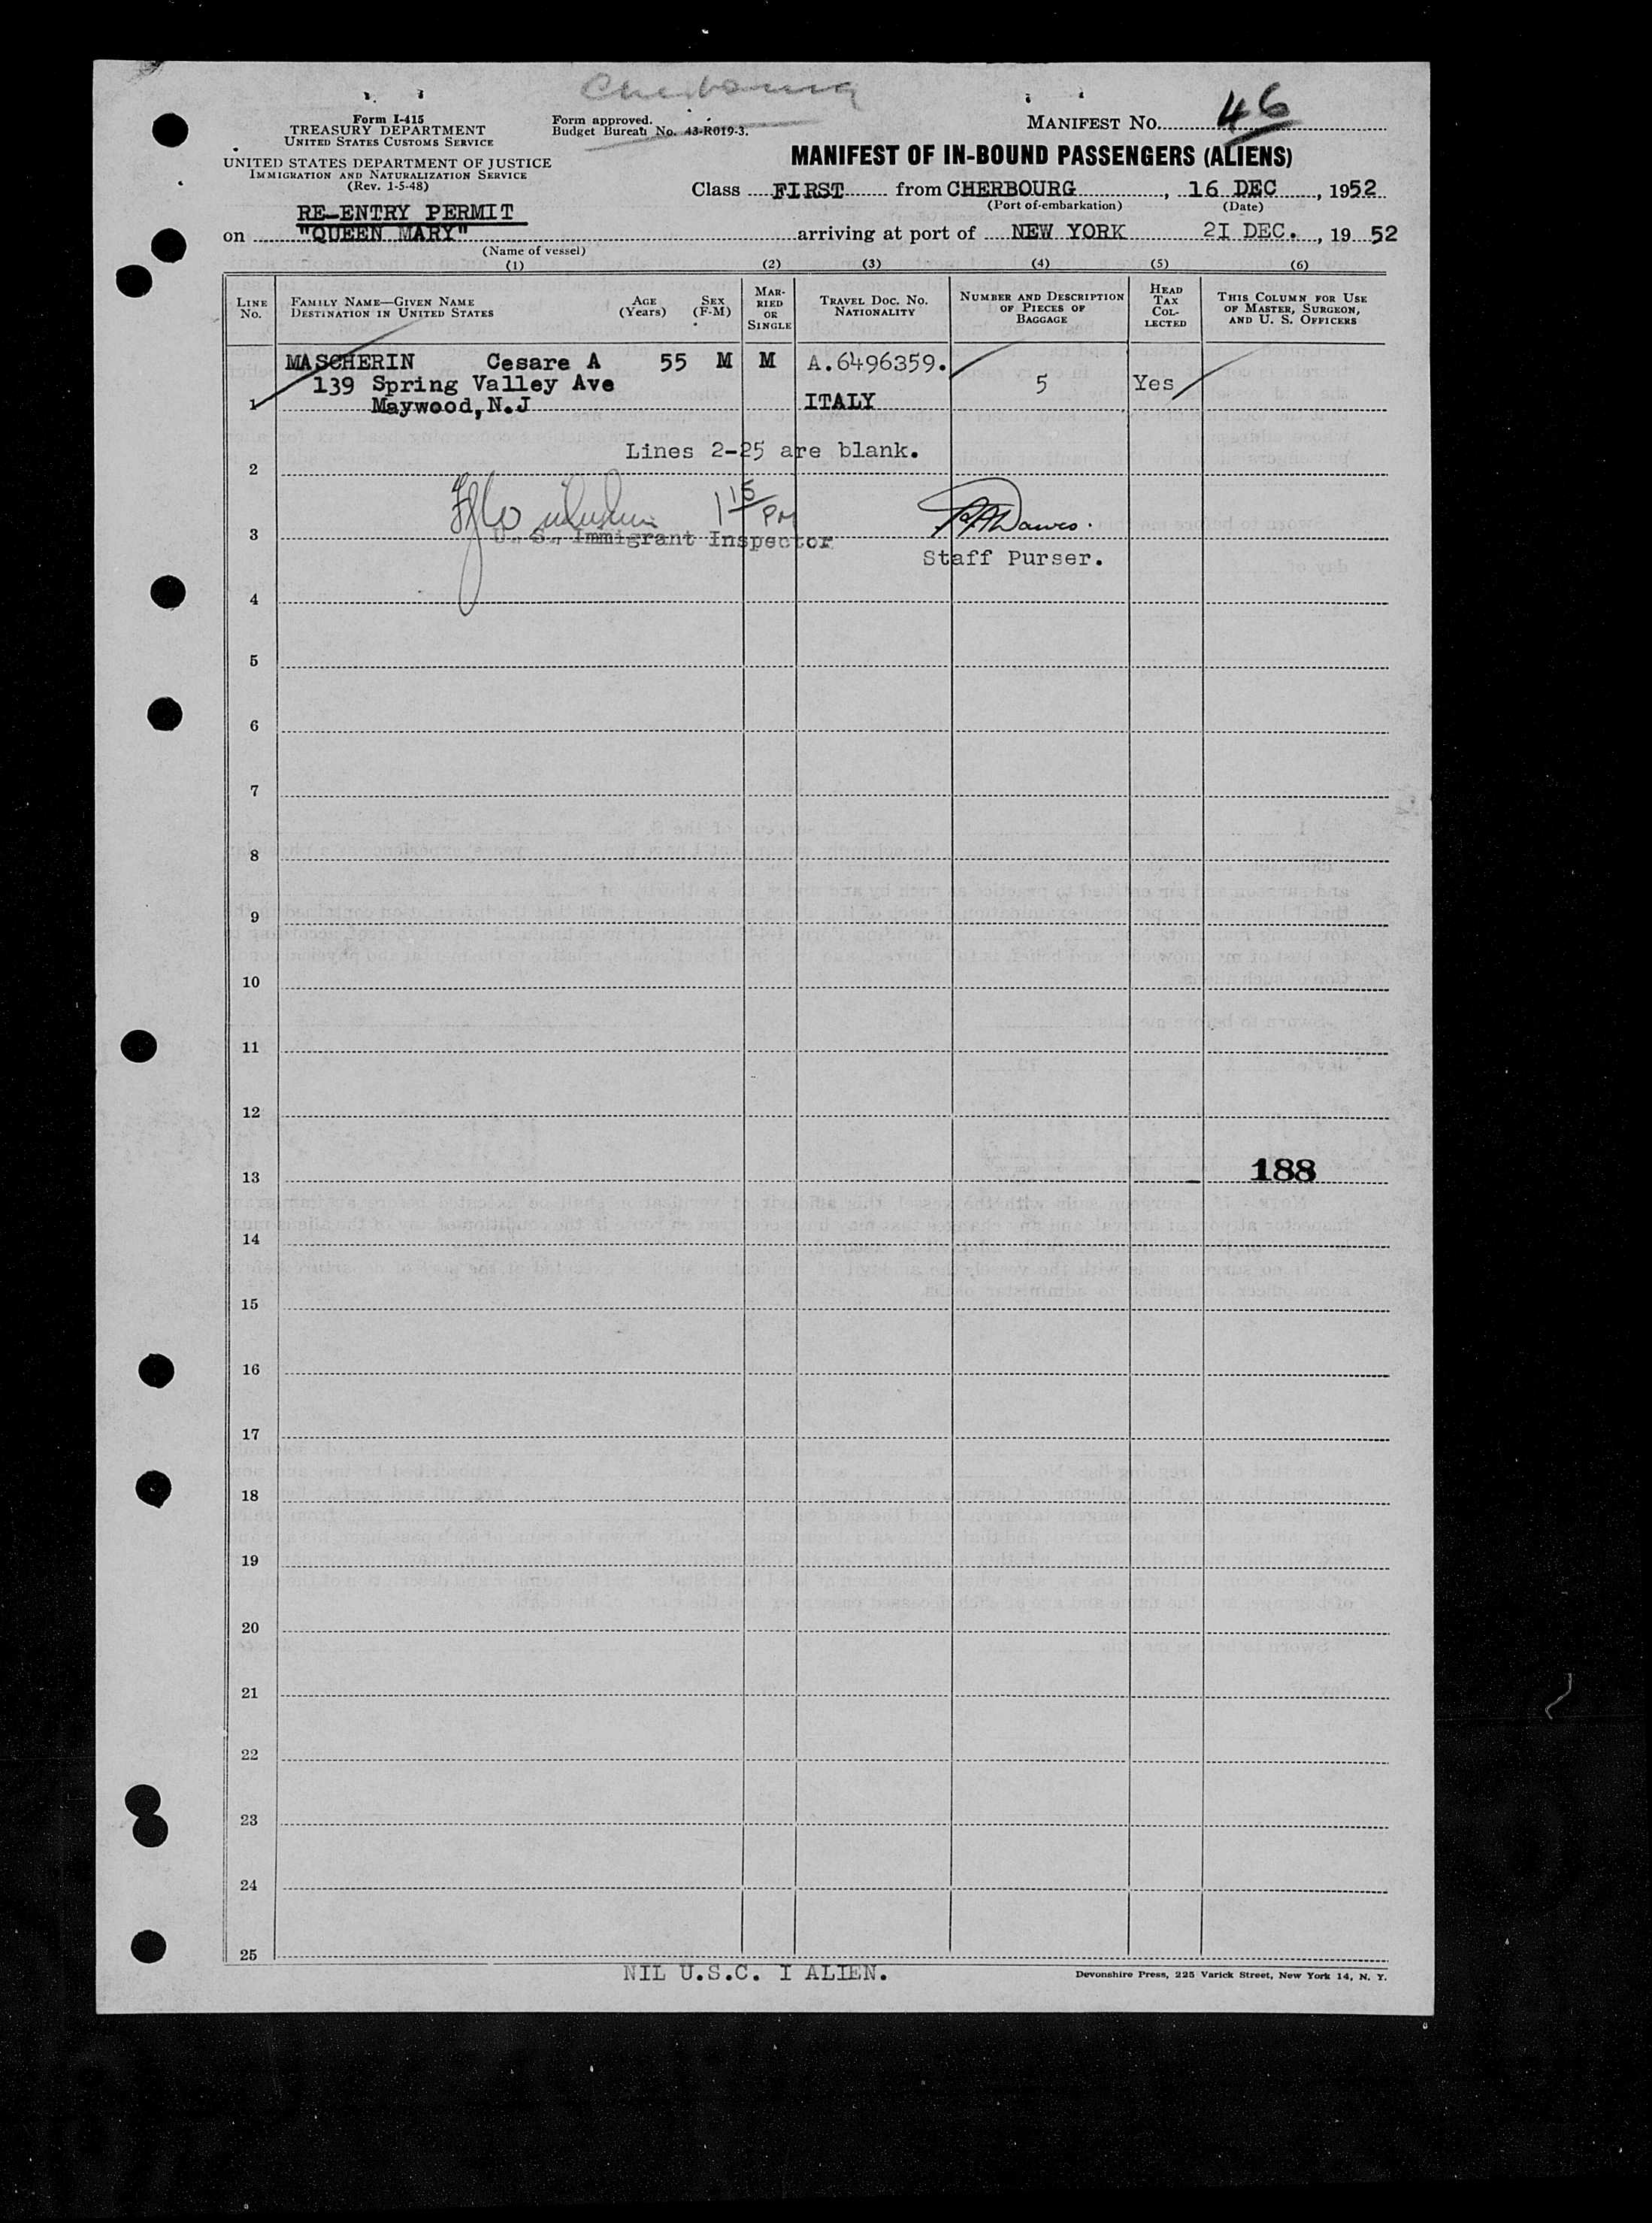 Cherbourg
Form I-415
TREASURY DEPARTMENT
UNITED STATES CUSTOMS SERVICE
UNITED STATES DEPARTMENT OF JUSTICE
IMMIGRATION AND NATURALIZATION SERVICE
(Rev. 1-5-48)
Form approved.
Budget Bureau No. 43-R019-3.
MANIFEST NO. 46
MANIFEST OF IN-BOUND PASSENGERS (ALIENS)
Class FIRST from CHERBOURG, 16 DEC, 1952
(Port of embarkation) (Date)
RE-ENTRY PERMIT
on "QUEEN MARY" arriving at port of NEW YORK 2I DEC., 19 52
(Name of vessel)
(1) (2) (3) (4) (5) (6)
LINE NO.
FAMILY NAME—GIVEN NAME
DESTINATION IN UNITED STATES
AGE (Years)
SEX (F-M)
MARRIED OR SINGLE
TRAVEL DOC. NO.
NATIONALITY
NUMBER AND DESCRIPTION OF PIECES OF BAGGAGE
HEAD TAX COLLECTED
THIS COLUMN FOR USE OF MASTER, SURGEON, AND U. S. OFFICERS
MASCHERIN Cesare A 55 M M A.6496359.
139 Spring Valley Ave 5 Yes
1 Maywood, N.J ITALY
Lines 2-25 are blank.
2
1 15 PM
3 U. S. Immigrant Inspector
Staff Purser.
4
5
6
7
8
9
10
11
12
13 188
14
15
16
17
18
19
20
21
22
23
24
25
NIL U.S.C. I ALIEN.
Devonshire Press, 225 Varick Street, New York 14, N. Y.